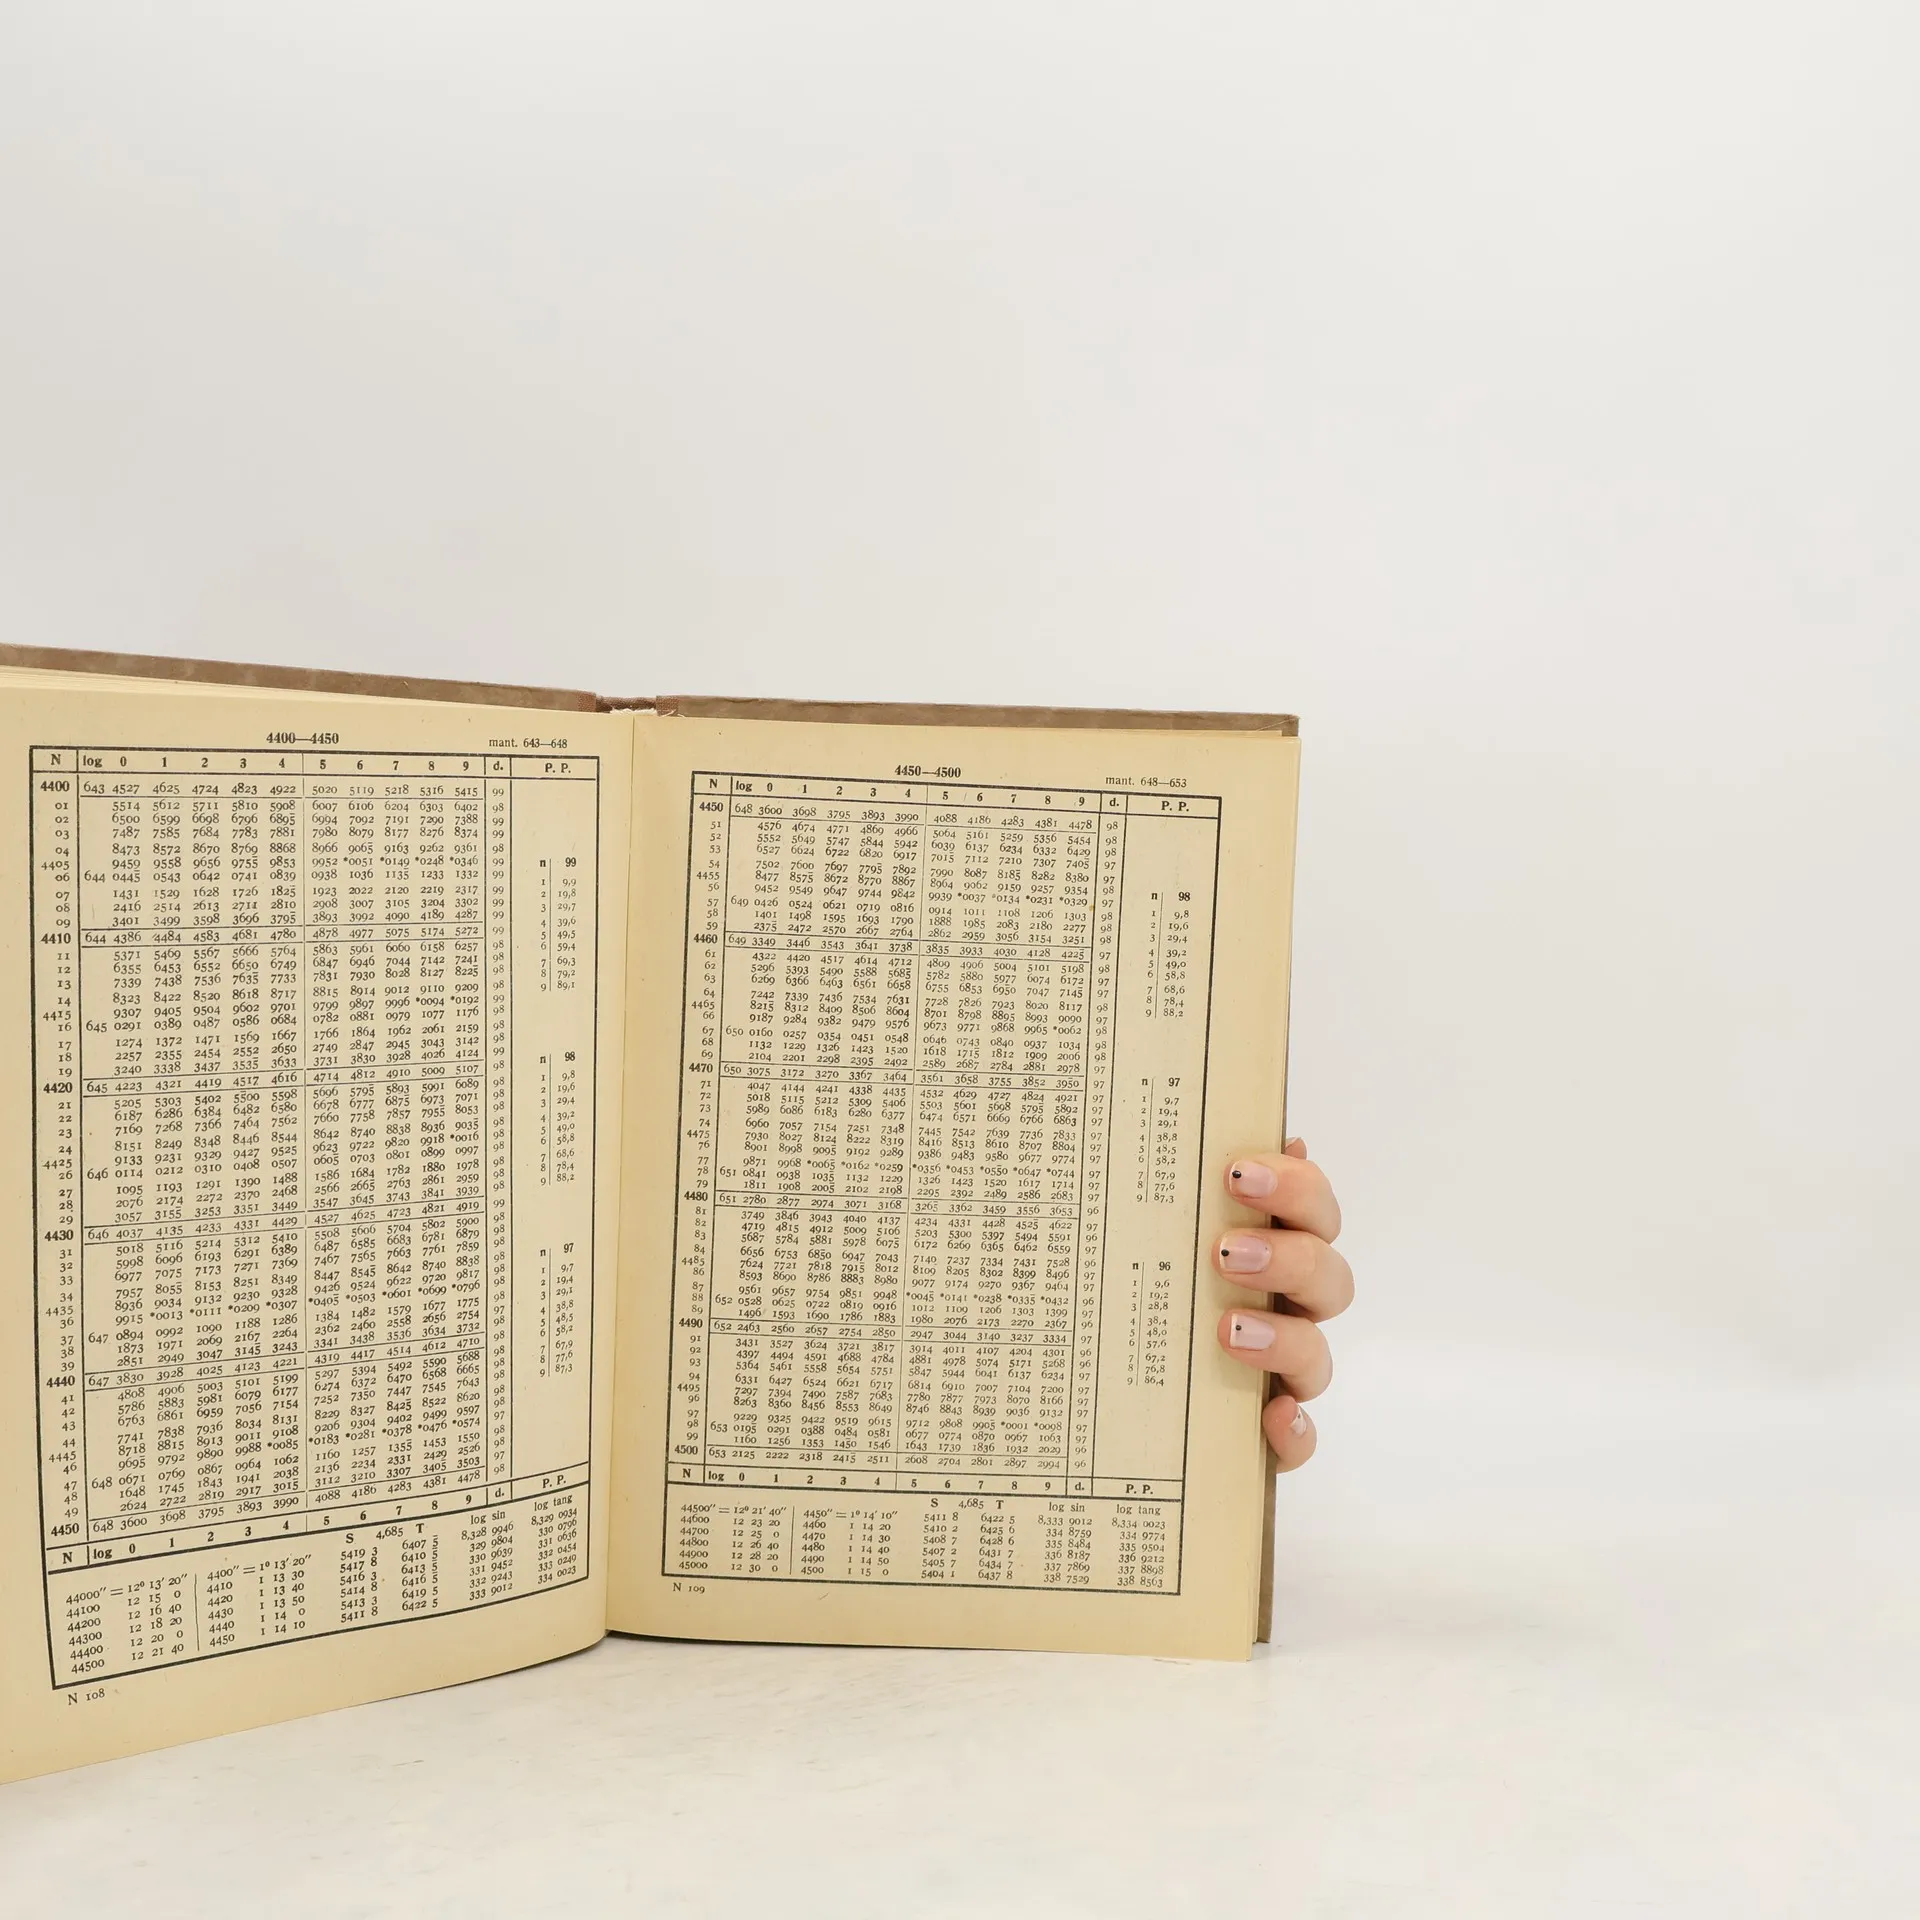 4400—4450
mant. 643—648
N log 0 1 2 3 4 5 6 7 8 9 d. P. P.
4400 643 4527 4625 4724 4823 4922 5020 5119 5218 5316 5415 99
01 5514 5612 5711 5810 5908 6007 6106 6204 6303 6402 98
02 6500 6599 6698 6796 6895 6994 7092 7191 7290 7388 99
03 7487 7585 7684 7783 7881 7980 8079 8177 8276 8374 99
04 8473 8572 8670 8769 8868 8966 9065 9163 9262 9361 98
4405 9459 9558 9656 9755 9853 9952 *0051 *0149 *0248 *0346 99
06 644 0445 0543 0642 0741 0839 0938 1036 1135 1233 1332 99
07 1431 1529 1628 1726 1825 1923 2022 2120 2219 2317 99
08 2416 2514 2613 2711 2810 2908 3007 3105 3204 3302 99
09 3401 3499 3598 3696 3795 3893 3992 4090 4189 4287 99
4410 644 4386 4484 4583 4681 4780 4878 4977 5075 5174 5272 99
11 5371 5469 5567 5666 5764 5863 5961 6060 6158 6257 98
12 6355 6453 6552 6650 6749 6847 6946 7044 7142 7241 98
13 7339 7438 7536 7635 7733 7831 7930 8028 8127 8225 98
14 8323 8422 8520 8618 8717 8815 8914 9012 9110 9209 98
4415 9307 9405 9504 9602 9701 9799 9897 9996 *0094 *0192 99
16 645 0291 0389 0487 0586 0684 0782 0881 0979 1077 1176 98
17 1274 1372 1471 1569 1667 1766 1864 1962 2061 2159 98
18 2257 2355 2454 2552 2650 2749 2847 2945 3043 3142 98
19 3240 3338 3437 3535 3633 3731 3830 3928 4026 4124 99
4420 645 4223 4321 4419 4517 4616 4714 4812 4910 5009 5107 98
21 5205 5303 5402 5500 5598 5696 5795 5893 5991 6089 98
22 6187 6286 6384 6482 6580 6678 6777 6875 6973 7071 98
23 7169 7268 7366 7464 7562 7660 7758 7857 7955 8053 98
24 8151 8249 8348 8446 8544 8642 8740 8838 8936 9035 98
4425 9133 9231 9329 9427 9525 9623 9722 9820 9918 *0016 98
26 646 0114 0212 0310 0408 0507 0605 0703 0801 0899 0997 98
27 1095 1193 1291 1390 1488 1586 1684 1782 1880 1978 98
28 2076 2174 2272 2370 2468 2566 2665 2763 2861 2959 98
29 3057 3155 3253 3351 3449 3547 3645 3743 3841 3939 98
4430 646 4037 4135 4233 4331 4429 4527 4625 4723 4821 4919 99
31 5018 5116 5214 5312 5410 5508 5606 5704 5802 5900 98
32 5998 6096 6193 6291 6389 6487 6585 6683 6781 6879 98
33 6977 7075 7173 7271 7369 7467 7565 7663 7761 7859 98
34 7957 8055 8153 8251 8349 8447 8545 8642 8740 8838 98
4435 8936 9034 9132 9230 9328 9426 9524 9622 9720 9817 98
36 9915 *0013 *0111 *0209 *0307 *0405 *0503 *0601 *0699 *0796 98
37 647 0894 0992 1090 1188 1286 1384 1482 1579 1677 1775 98
38 1873 1971 2069 2167 2264 2362 2460 2558 2656 2754 97
39 2851 2949 3047 3145 3243 3341 3438 3536 3634 3732 98
4440 647 3830 3928 4025 4123 4221 4319 4417 4514 4612 4710 98
41 4808 4906 5003 5101 5199 5297 5394 5492 5590 5688 98
42 5786 5883 5981 6079 6177 6274 6372 6470 6568 6665 98
43 6763 6861 6959 7056 7154 7252 7350 7447 7545 7643 98
44 7741 7838 7936 8034 8131 8229 8327 8425 8522 8620 98
4445 8718 8815 8913 9011 9108 9206 9304 9402 9499 9597 98
46 9695 9792 9890 9988 *0085 *0183 *0281 *0378 *0476 *0574 97
47 648 0671 0769 0867 0964 1062 1160 1257 1355 1453 1550 98
48 1648 1745 1843 1941 2038 2136 2234 2331 2429 2526 98
49 2624 2722 2819 2917 3015 3112 3210 3307 3405 3503 97
4450 648 3600 3698 3795 3893 3990 4088 4186 4283 4381 4478 98
n 99
1 9,9
2 19,8
3 29,7
4 39,6
5 49,5
6 59,4
7 69,3
8 79,2
9 89,1
n 98
1 9,8
2 19,6
3 29,4
4 39,2
5 49,0
6 58,8
7 68,6
8 78,4
9 88,2
n 97
1 9,7
2 19,4
3 29,1
4 38,8
5 48,5
6 58,2
7 67,9
8 77,6
9 87,3
N log 0 1 2 3 4 5 6 7 8 9 d. P. P.
S 4,685 T log sin log tang
44000″ = 12° 13′ 20″ 4400″ = 1° 13′ 20″ 5419 3 6407 5 8,328 9946 8,329 0934
44100 12 15 0 4410 1 13 30 5417 8 6410 5 329 9804 330 0796
44200 12 16 40 4420 1 13 40 5416 3 6413 5 330 9639 331 0636
44300 12 18 20 4430 1 13 50 5414 8 6416 5 331 9452 332 0454
44400 12 20 0 4440 1 14 0 5413 3 6419 5 332 9243 333 0249
44500 12 21 40 4450 1 14 10 5411 8 6422 5 333 9012 334 0023
N 108
4450—4500
mant. 648—653
N log 0 1 2 3 4 5 6 7 8 9 d. P. P.
4450 648 3600 3698 3795 3893 3990 4088 4186 4283 4381 4478 98
51 4576 4674 4771 4869 4966 5064 5161 5259 5356 5454 98
52 5552 5649 5747 5844 5942 6039 6137 6234 6332 6429 98
53 6527 6624 6722 6820 6917 7015 7112 7210 7307 7405 97
54 7502 7600 7697 7795 7892 7990 8087 8185 8282 8380 97
4455 8477 8575 8672 8770 8867 8964 9062 9159 9257 9354 98
56 9452 9549 9647 9744 9842 9939 *0037 *0134 *0231 *0329 97
57 649 0426 0524 0621 0719 0816 0914 1011 1108 1206 1303 98
58 1401 1498 1595 1693 1790 1888 1985 2083 2180 2277 98
59 2375 2472 2570 2667 2764 2862 2959 3056 3154 3251 98
4460 649 3349 3446 3543 3641 3738 3835 3933 4030 4128 4225 97
61 4322 4420 4517 4614 4712 4809 4906 5004 5101 5198 98
62 5296 5393 5490 5588 5685 5782 5880 5977 6074 6172 97
63 6269 6366 6463 6561 6658 6755 6853 6950 7047 7145 97
64 7242 7339 7436 7534 7631 7728 7826 7923 8020 8117 98
4465 8215 8312 8409 8506 8604 8701 8798 8895 8993 9090 97
66 9187 9284 9382 9479 9576 9673 9771 9868 9965 *0062 98
67 650 0160 0257 0354 0451 0548 0646 0743 0840 0937 1034 98
68 1132 1229 1326 1423 1520 1618 1715 1812 1909 2006 98
69 2104 2201 2298 2395 2492 2589 2687 2784 2881 2978 97
4470 650 3075 3172 3270 3367 3464 3561 3658 3755 3852 3950 97
71 4047 4144 4241 4338 4435 4532 4629 4727 4824 4921 97
72 5018 5115 5212 5309 5406 5503 5601 5698 5795 5892 97
73 5989 6086 6183 6280 6377 6474 6571 6669 6766 6863 97
74 6960 7057 7154 7251 7348 7445 7542 7639 7736 7833 97
4475 7930 8027 8124 8222 8319 8416 8513 8610 8707 8804 97
76 8901 8998 9095 9192 9289 9386 9483 9580 9677 9774 97
77 9871 9968 *0065 *0162 *0259 *0356 *0453 *0550 *0647 *0744 97
78 651 0841 0938 1035 1132 1229 1326 1423 1520 1617 1714 97
79 1811 1908 2005 2102 2198 2295 2392 2489 2586 2683 97
4480 651 2780 2877 2974 3071 3168 3265 3362 3459 3556 3653 96
81 3749 3846 3943 4040 4137 4234 4331 4428 4525 4622 97
82 4719 4815 4912 5009 5106 5203 5300 5397 5494 5591 96
83 5687 5784 5881 5978 6075 6172 6269 6365 6462 6559 97
84 6656 6753 6850 6947 7043 7140 7237 7334 7431 7528 96
4485 7624 7721 7818 7915 8012 8109 8205 8302 8399 8496 97
86 8593 8690 8786 8883 8980 9077 9174 9270 9367 9464 97
87 9561 9657 9754 9851 9948 *0045 *0141 *0238 *0335 *0432 96
88 652 0528 0625 0722 0819 0916 1012 1109 1206 1303 1399 97
89 1496 1593 1690 1786 1883 1980 2076 2173 2270 2367 96
4490 652 2463 2560 2657 2754 2850 2947 3044 3140 3237 3334 97
91 3431 3527 3624 3721 3817 3914 4011 4107 4204 4301 96
92 4397 4494 4591 4688 4784 4881 4978 5074 5171 5268 96
93 5364 5461 5558 5654 5751 5847 5944 6041 6137 6234 97
94 6331 6427 6524 6621 6717 6814 6910 7007 7104 7200 97
4495 7297 7394 7490 7587 7683 7780 7877 7973 8070 8166 97
96 8263 8360 8456 8553 8649 8746 8843 8939 9036 9132 97
97 9229 9325 9422 9519 9615 9712 9808 9905 *0001 *0098 97
98 653 0195 0291 0388 0484 0581 0677 0774 0870 0967 1063 97
99 1160 1256 1353 1450 1546 1643 1739 1836 1932 2029 96
4500 653 2125 2222 2318 2415 2511 2608 2704 2801 2897 2994 96
n 98
1 9,8
2 19,6
3 29,4
4 39,2
5 49,0
6 58,8
7 68,6
8 78,4
9 88,2
n 97
1 9,7
2 19,4
3 29,1
4 38,8
5 48,5
6 58,2
7 67,9
8 77,6
9 87,3
n 96
1 9,6
2 19,2
3 28,8
4 38,4
5 48,0
6 57,6
7 67,2
8 76,8
9 86,4
N log 0 1 2 3 4 5 6 7 8 9 d. P. P.
S 4,685 T log sin log tang
44500″ = 12° 21′ 40″ 4450″ = 1° 14′ 10″ 5411 8 6422 5 8,333 9012 8,334 0023
44600 12 23 20 4460 1 14 20 5410 2 6425 6 334 8759 334 9774
44700 12 25 0 4470 1 14 30 5408 7 6428 6 335 8484 335 9504
44800 12 26 40 4480 1 14 40 5407 2 6431 7 336 8187 336 9212
44900 12 28 20 4490 1 14 50 5405 7 6434 7 337 7869 337 8898
45000 12 30 0 4500 1 15 0 5404 1 6437 8 338 7529 338 8563
N 109